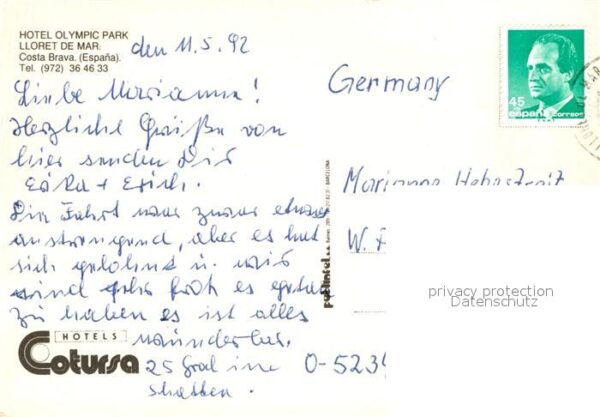 HOTEL OLYMPIC PARK
LLORET DE MAR.
Costa Brava. (España).
Tel. (972) 36 46 33
den 11.5.92
Liebe Marianne!
Herzliche Grüße von
hier senden Dir
Erika + Erich.
Die Fahrt war zwar etwas
anstrengend, aber es hat
sich gelohnt u. wir
sind sehr froh es getan
zu haben es ist alles
wunderbar,
25 Grad im
Schatten.
HOTELS
Cotursa
Germany
45
españa correos
Marianne
W.
privacy protection
Datenschutz
O-5234